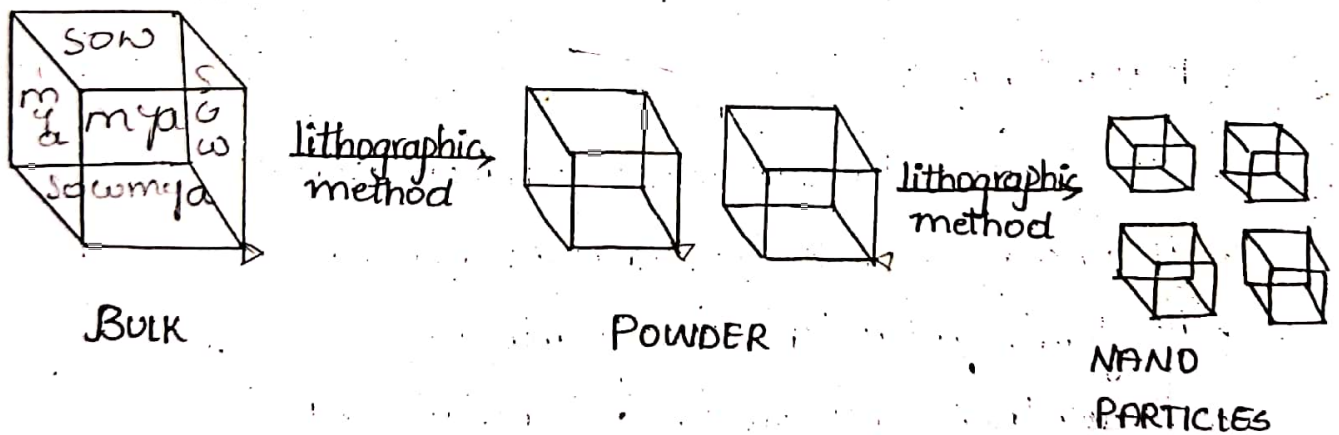 sow
mya
mya
sow
sowmya
lithographic
method
lithographic
method
BULK
POWDER
NANO
PARTICLES